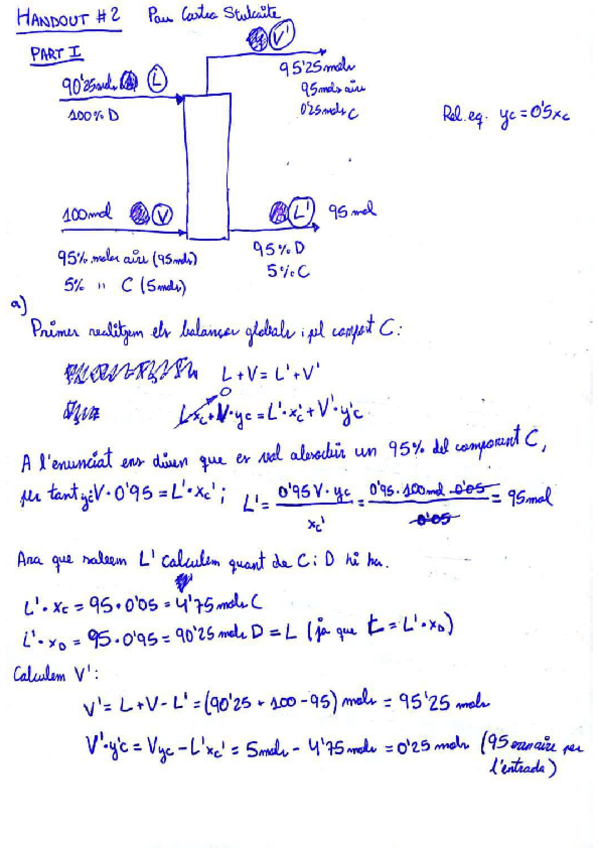 HANDOUT #2 Pau Castra
PART I
V'
95'25 mols
95 mols aire
0'25 mols C
90'25 mols L
100% D
Rel. eq. yc = 0'5xc
100 mol V
L' 95 mol
95% molar aire (95 mols)
5% " C (5 mols)
95% D
5% C
a)
Primer realitzem els balanços globals i pel compost C:
L + V = L' + V'
0
L·xc + V·yc = L'·xc' + V'·y'c
A l'enunciat ens diuen que es vol absorbir un 95% del component C,
per tant yc·V·0'95 = L'·xc' ; L' = 0'95 V·yc / xc' = 0'95·100 mol·0'05 / 0'05 = 95 mol
Ara que sabem L' calculem quant de C i D hi ha.
L'·xc = 95·0'05 = 4'75 mols C
L'·xD = 95·0'95 = 90'25 mols D = L (ja que L = L'·xD)
Calculem V':
V' = L + V - L' = (90'25 + 100 - 95) mols = 95'25 mols
V'·y'c = Vyc - L'xc' = 5 mols - 4'75 mols = 0'25 mols (95 eren aire per
l'entrada)